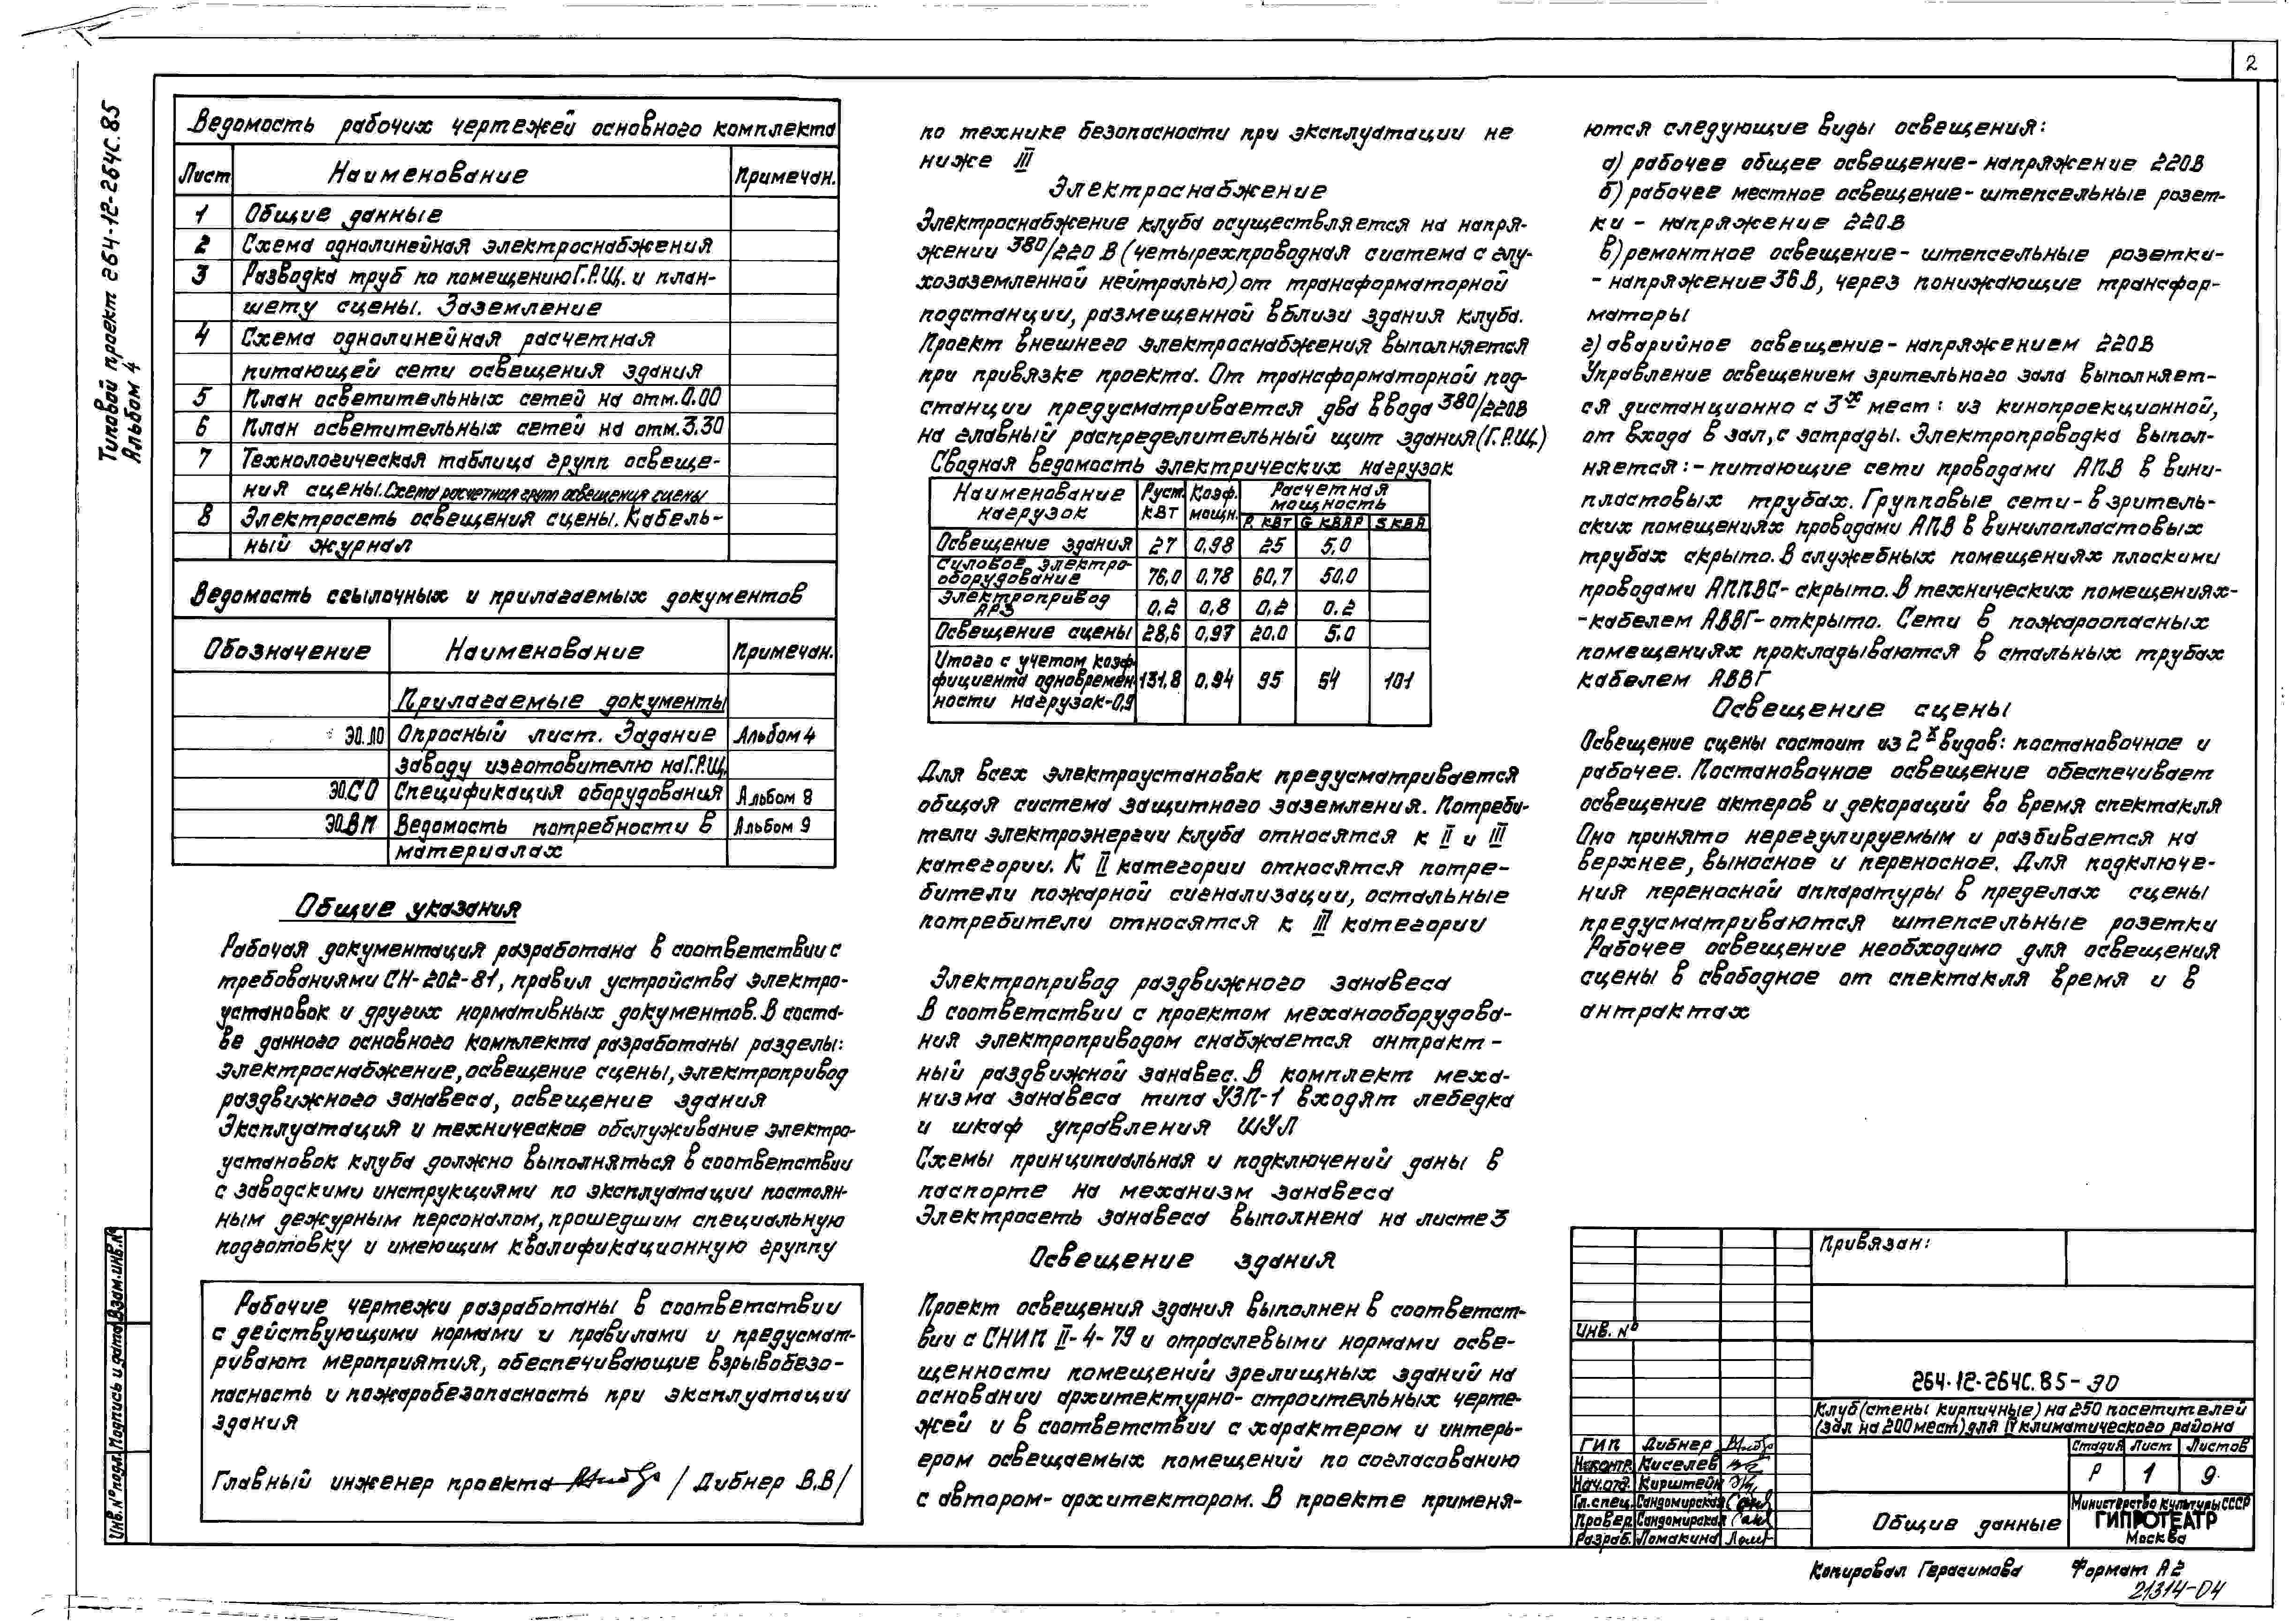 2
Типовой проект 264-12-264С.85
Альбом 4
Ведомость рабочих чертежей основного комплекта
Лист Наименование Примечан.
1 Общие данные
2 Схема однолинейная электроснабжения
3 Разводка труб по помещению Г.Р.Щ. и план-
шету сцены. Заземление
4 Схема однолинейная расчетная
питающей сети освещения здания
5 План осветительных сетей на отм.0.00
6 План осветительных сетей на отм.3.30
7 Технологическая таблица групп освеще-
ния сцены. Схема расчетная групп освещения сцены
8 Электросеть освещения сцены. Кабель-
ный журнал
Ведомость ссылочных и прилагаемых документов
Обозначение Наименование Примечан.
Прилагаемые документы
ЭО.ЛО Опросный лист. Задание Альбом 4
заводу изготовителю на Г.Р.Щ.
ЭО.СО Спецификация оборудования Альбом 8
ЭО.ВМ Ведомость потребности в Альбом 9
материалах
Общие указания
Рабочая документация разработана в соответствии с
требованиями СН-202-81, правил устройства электро-
установок и других нормативных документов. В соста-
ве данного основного комплекта разработаны разделы:
электроснабжение, освещение сцены, электропривод
раздвижного занавеса, освещение здания
Эксплуатация и техническое обслуживание электро-
установок клуба должно выполняться в соответствии
с заводскими инструкциями по эксплуатации постоян-
ным дежурным персоналом, прошедшим специальную
подготовку и имеющим квалификационную группу
Рабочие чертежи разработаны в соответствии
с действующими нормами и правилами и предусмат-
ривают мероприятия, обеспечивающие взрывобезо-
пасность и пожаробезопасность при эксплуатации
здания
Главный инженер проекта / Дибнер В.В/
по технике безопасности при эксплуатации не
ниже III
Электроснабжение
Электроснабжение клуба осуществляется на напря-
жении 380/220 В (четырехпроводная система с глу-
хозаземленной нейтралью) от трансформаторной
подстанции, размещенной вблизи здания клуба.
Проект внешнего электроснабжения выполняется
при привязке проекта. От трансформаторной под-
станции предусматривается два ввода 380/220В
на главный распределительный щит здания (Г.Р.Щ.)
Сводная ведомость электрических нагрузок
Наименование нагрузок Руст. кВт Коэф. мощн. Расчетная мощность
Р. кВт G кВАР S кВА
Освещение здания 27 0,98 25 5,0
Силовое электро-
оборудование 76,0 0,78 60,7 50,0
Электропривод
АРЗ 0.2 0,8 0,2 0.2
Освещение сцены 28,6 0,97 20.0 5.0
Итого с учетом коэф-
фициента одновремен 131,8 0,94 95 54 101
ности нагрузок-0,9
Для всех электроустановок предусматривается
общая система защитного заземления. Потреби-
тели электроэнергии клуба относятся к II и III
категории. К II категории относятся потре-
бители пожарной сигнализации, остальные
потребители относятся к III категории
Электропривод раздвижного занавеса
В соответствии с проектом механооборудова-
ния электроприводом снабжается антракт-
ный раздвижной занавес. В комплект меха-
низма занавеса типа УЗП-1 входят лебедка
и шкаф управления ШУЛ
Схемы принципиальная и подключений даны в
паспорте на механизм занавеса
Электросеть занавеса выполнена на листе 3
Освещение здания
Проект освещения здания выполнен в соответст-
вии с СНИП II-4-79 и отраслевыми нормами осве-
щенности помещений зрелищных зданий на
основании архитектурно-строительных черте-
жей и в соответствии с характером и интерь-
ером освещаемых помещений по согласованию
с автором-архитектором. В проекте применя-
ются следующие виды освещения:
а) рабочее общее освещение-напряжение 220В
б) рабочее местное освещение-штепсельные розет-
ки - напряжение 220В
в) ремонтное освещение-штепсельные розетки-
-напряжение 36В, через понижающие трансфор-
маторы
г) аварийное освещение-напряжением 220В
Управление освещением зрительного зала выполняет-
ся дистанционно с 3х мест: из кинопроекционной,
от входа в зал, с эстрады. Электропроводка выпол-
няется:-питающие сети проводами АПВ в вини-
пластовых трубах. Групповые сети-в зритель-
ских помещениях проводами АПВ в винилопластовых
трубах скрыто. В служебных помещениях плоскими
проводами АППВС-скрыто. В технических помещениях-
-кабелем АВВГ-открыто. Сети в пожароопасных
помещениях прокладываются в стальных трубах
кабелем АВВГ
Освещение сцены
Освещение сцены состоит из 2х видов: постановочное и
рабочее. Постановочное освещение обеспечивает
освещение актеров и декораций во время спектакля
Оно принято нерегулируемым и разбивается на
верхнее, выносное и переносное. Для подключе-
ния переносной аппаратуры в пределах сцены
предусматриваются штепсельные розетки
Рабочее освещение необходимо для освещения
сцены в свободное от спектакля время и в
антрактах
Привязан:
Инв. №
264-12-264С.85-ЭО
Клуб (стены кирпичные) на 250 посетителей
(зал на 200 мест) для IV климатического района
ГИП Дибнер
Н.контр. Киселев
Нач.отд. Кирштейн
Гл.спец. Сандомирская
Провер. Сандомирская
Разраб. Ломакина
Стадия Лист Листов
Р 1 9
Общие данные
Министерство культуры СССР
ГИПРОТЕАТР
Москва
Копировал Герасимова Формат А2
21314-04
Инв.№ подл. Подпись и дата Взам.инв.№